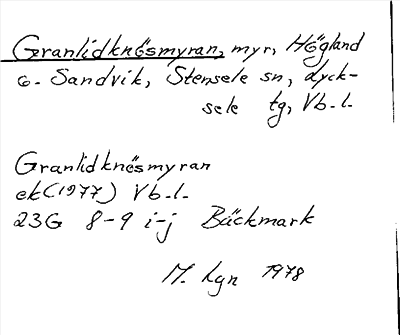 Granlidknösmyran, myr, Högland
o. Sandvik, Stensele sn, Lyck-
sele tg, Vb.l.
Granlidknösmyran
ek(1977) Vb.l.
23G 8-9 i-j Bäckmark
M. Lgn 1978